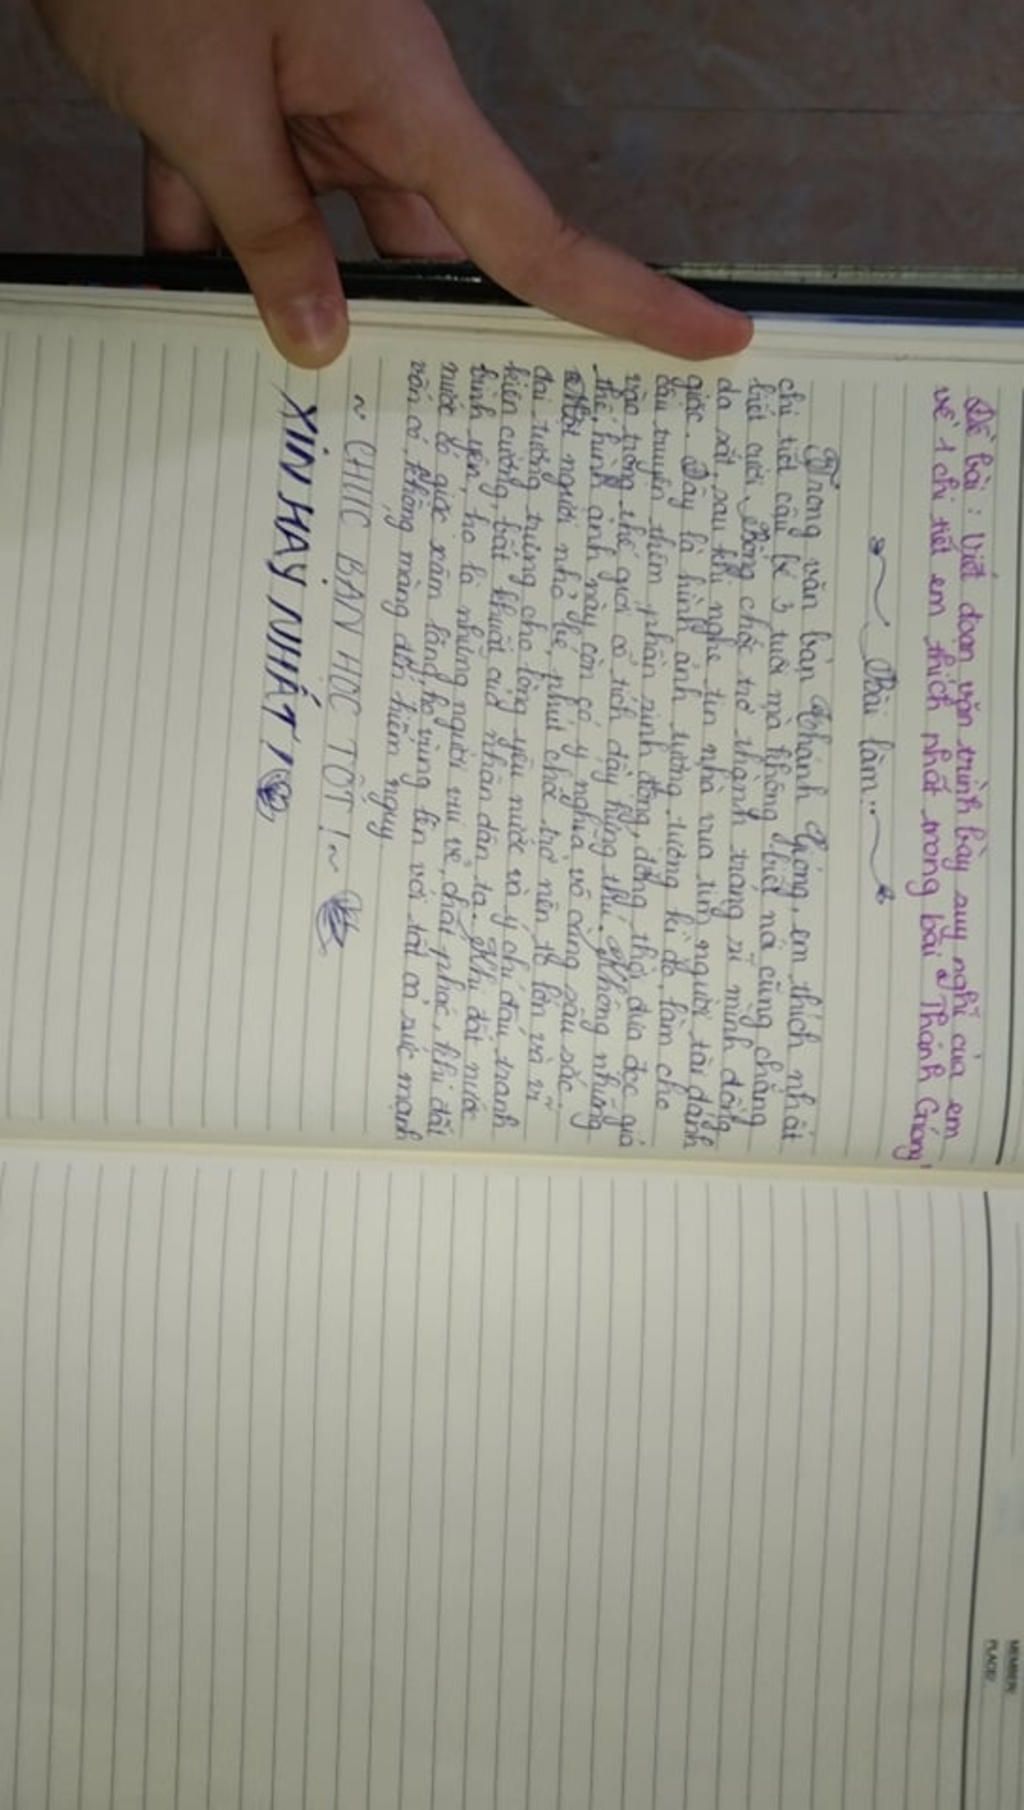 Đề bài: Viết đoạn văn trình bày suy nghĩ của em
về 1 chi tiết em thích nhất trong bài "Thánh Gióng"
Bài làm:
Trong văn bản Thánh Gióng, em thích nhất
chi tiết cậu bé 3 tuổi mà không biết nói cũng chẳng
biết cười, bỗng chốc trở thành tráng sĩ mình đồng
da sắt, sau khi nghe tin nhà vua tìm người tài đánh
giặc. Đây là hình ảnh tưởng tượng kì ảo, làm cho
câu truyện thêm phần sinh động, đồng thời đưa đọc giả
vào trong thế giới cổ tích đầy hứng thú. Không những
thế, hình ảnh này còn có ý nghĩa vô cùng sâu sắc.
Một người nhỏ bé, phút chốc trở nên to lớn và vĩ
đại, tượng trưng cho lòng yêu nước và ý chí đấu tranh
kiên cường, bất khuất của nhân dân ta. Khi đất nước
bình yên, họ là những người vui vẻ, chất phác, khi đất
nước có giặc xâm lăng, họ vùng lên với tất cả sức mạnh
vốn có, không màng đến hiểm nguy.
~ CHÚC BẠN HỌC TỐT! ~
XIN HAY NHẤT!
MEMBER/
PLACE/